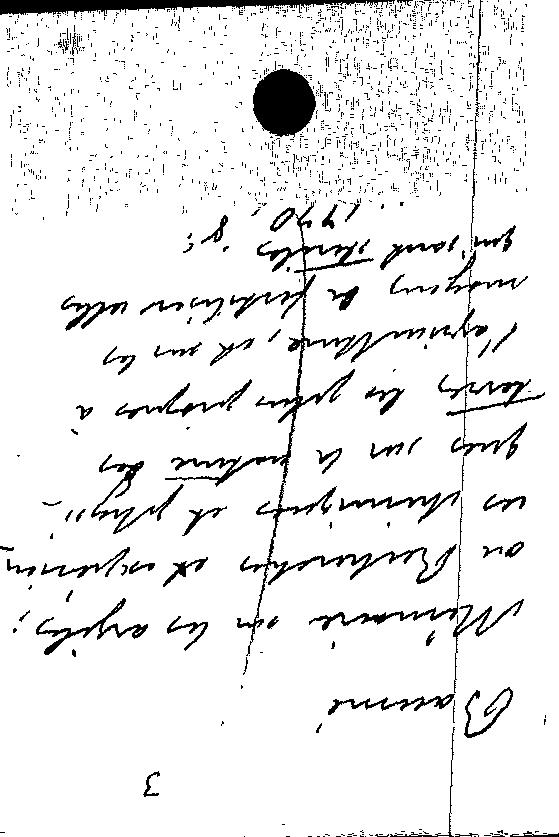 3
Baumé
Mémoire sur les argiles;
ou Recherches et expérien-
ces chimiques et physi-
ques sur la nature des
terres les plus propres à
l'agriculture, et sur les
moyens de fertiliser celles
qui sont stériles
... 1770, 8°